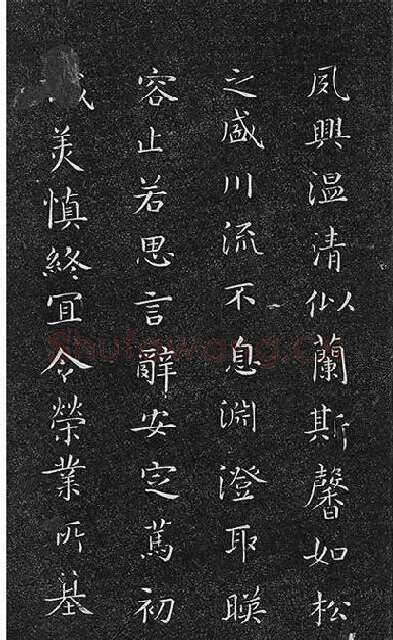 夙興温清似蘭斯馨如松
之盛川流不息淵澄取暎
容止若思言辭安定篤初
美慎終宜令榮業所基